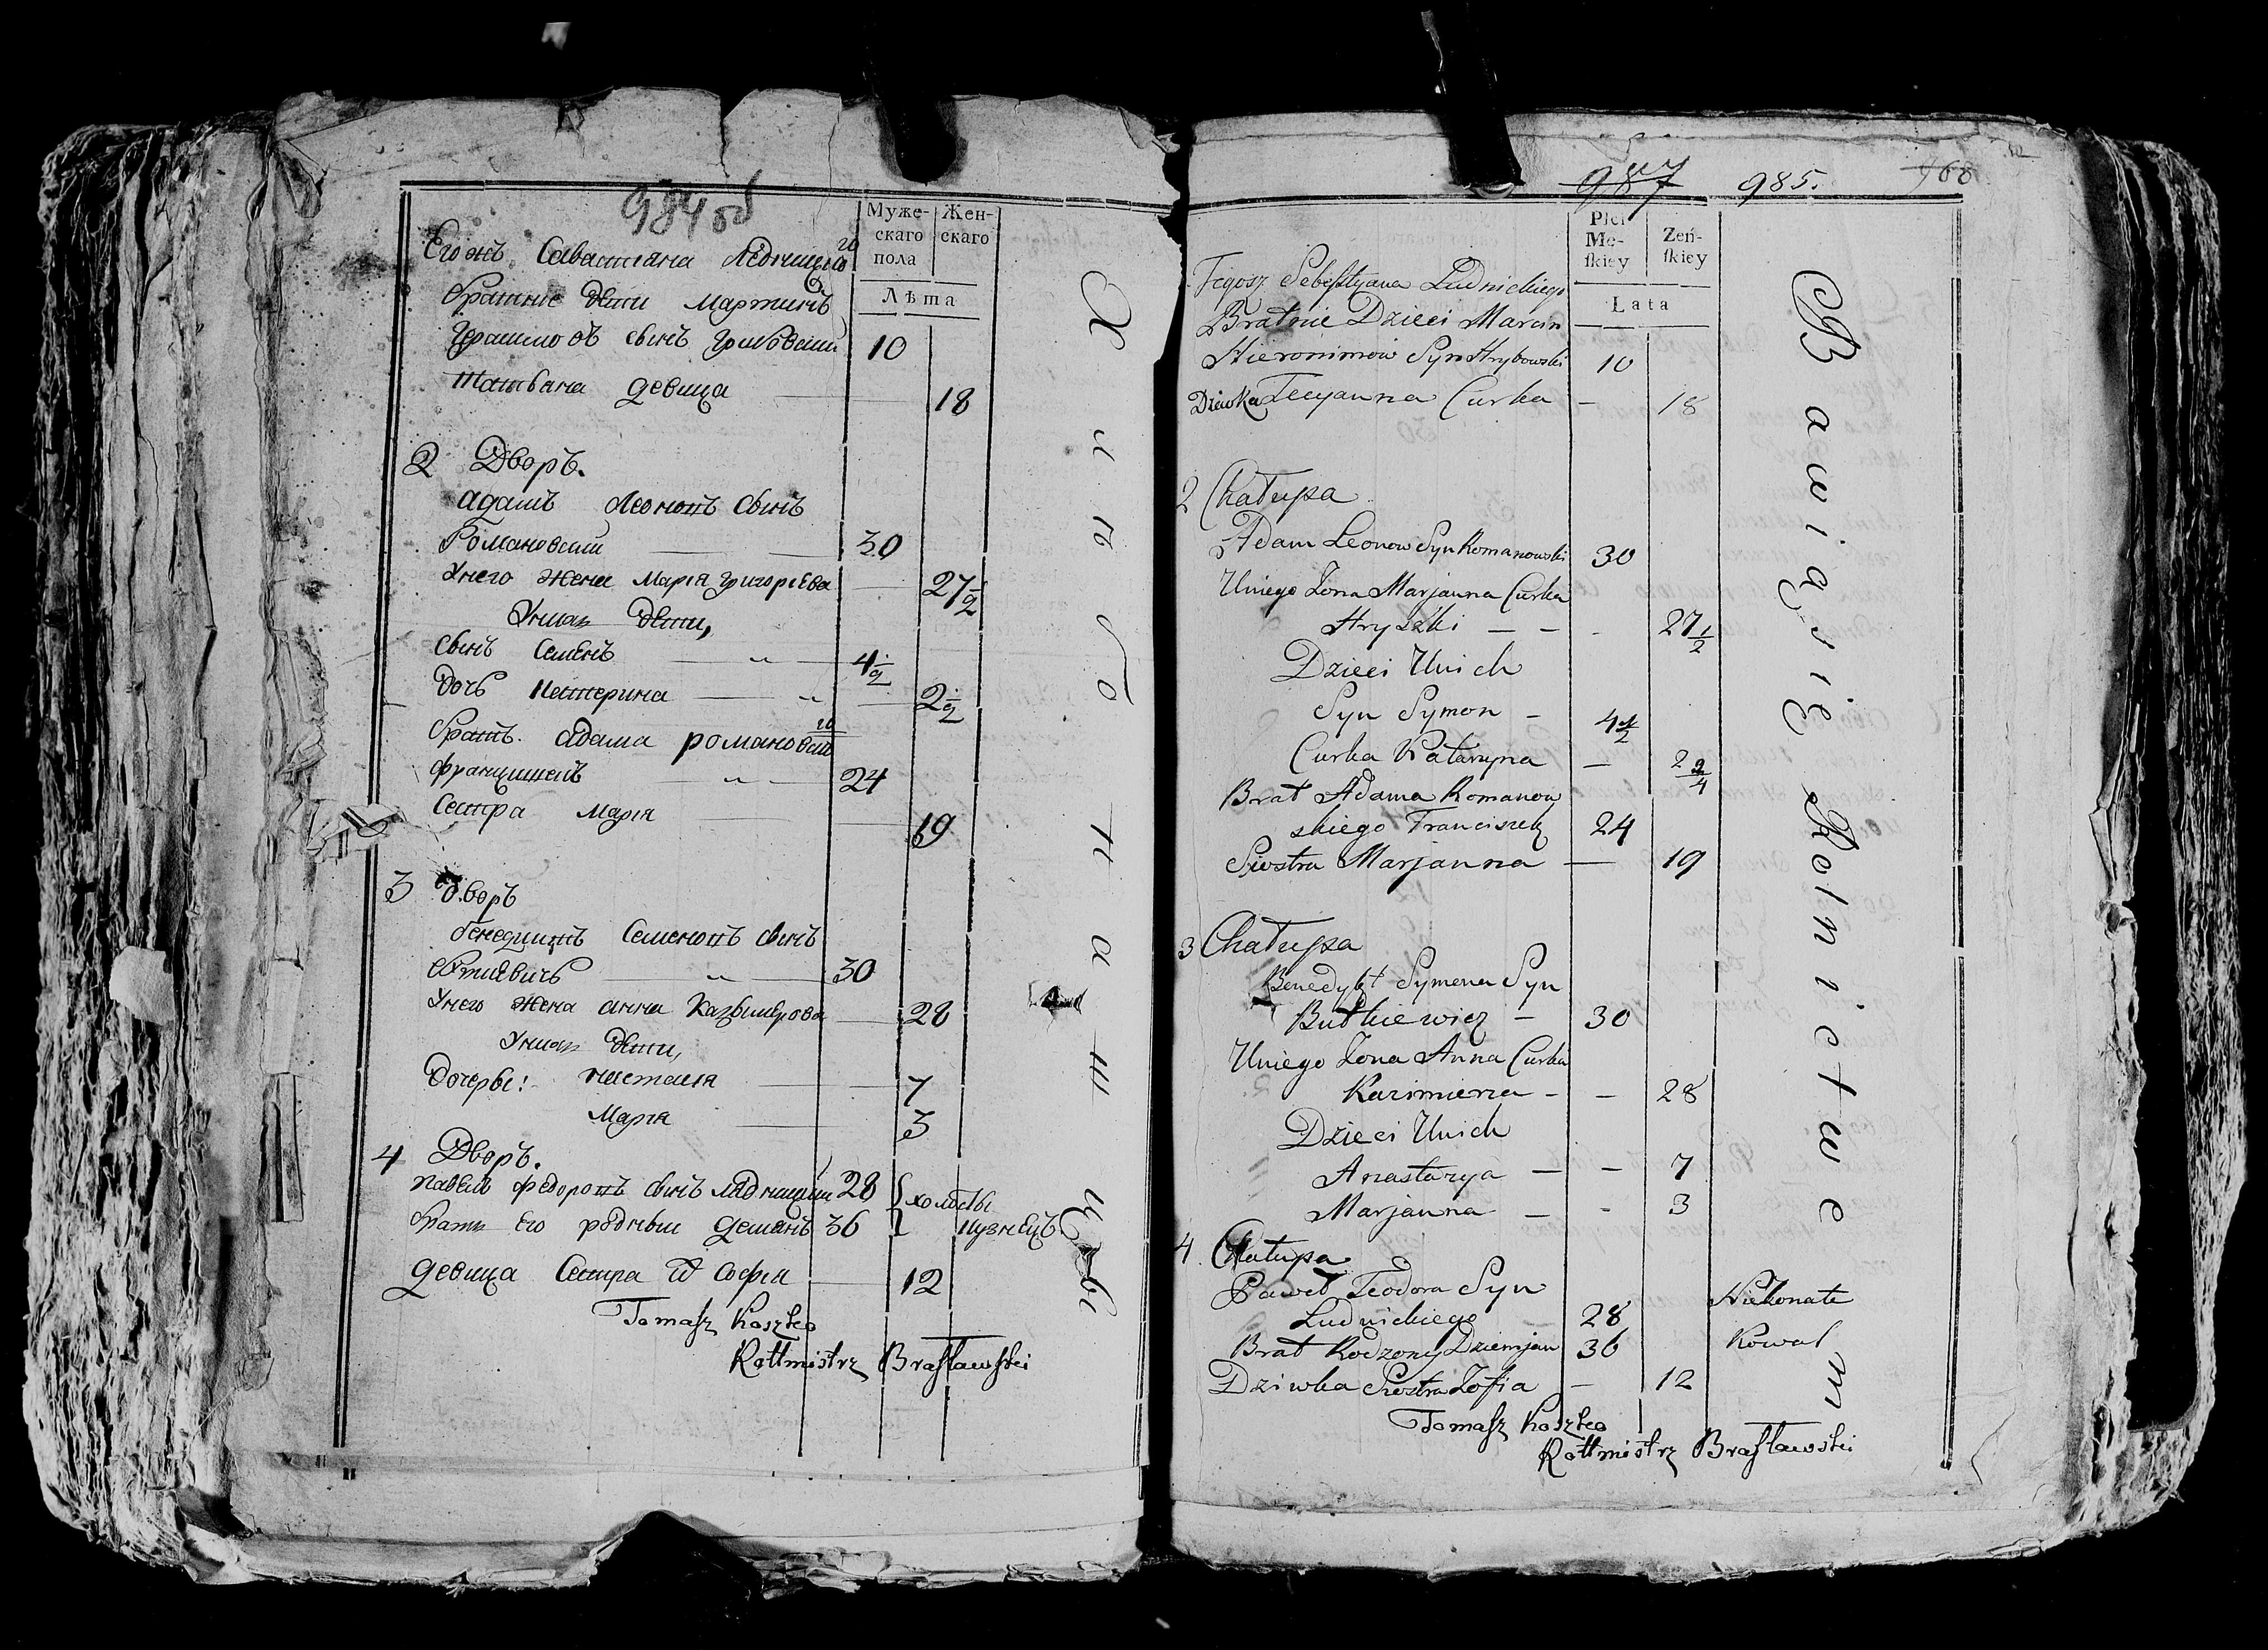 984 об
Муже-
скаго
пола
Жен-
скаго
Лѣта
Егожъ Савастяна Ледницкаго
братнiе дѣти Мартинъ
Герасимовъ сынъ Грибовский 10
Татьяна девица 18
2 Дворъ.
Адамъ Леоновъ сынъ
Романовский 30
У него жена Марiя Григорьева 27 1/2
У них дѣти,
сынъ Семенъ 4 1/2
дочь Катерина 2 1/2
братъ Адама Романовскаго
Францишекъ 24
сестра Марiя 19
3 дворъ
бенедиктъ Семеновъ сынъ
30
У него жена Анна Казимирова 28
У них дѣти,
дочеры: Настася 7
Марiя 3
4 Дворъ.
Павелъ Федоровъ сынъ Лядницкий 28 холосты
братъ его родныи Демянъ 36 кузнецъ
девица сестра их Софiя 12
Tomasz Koszko
Rottmistrz Brasławski
987 985. 968
Płci
Mę-
skiey
Żeń-
skiey
Lata
Tegosz Sebestyana Ludnickiego
Bratnie Dzieci Marcin
Hieronimow Syn Hrybowski 10
Dziwka Tecyanna Curka — 18
2 Chałupa
Adam Leonow Syn Romanowski 30
Uniego Żona Marjanna Curka
Hryszki — — - 27 1/2
Dzieci Unich
Syn Symon - 4 1/2
Curka Kataryna — 2 2/4
Brat Adama Romanow
skiego Franciszek 24
Siostra Marjanna — 19
3 Chałupa
Benedykt Symena Syn
Butkiewicz — 30
Uniego Żona Anna Curka
Kazimierza - - 28
Dzieci Unich
Anastazya — — 7
Marjanna — - 3
4. Chałupa
Paweł Teodora Syn
Ludnickiego 28 Nieżonate
Brat Rodzony Dziemjan 36 Kowal
Dziwka Siostra Zofia — 12
Tomasz Koszko
Rottmistrz Brasławski
Bawią się Rolnictwem